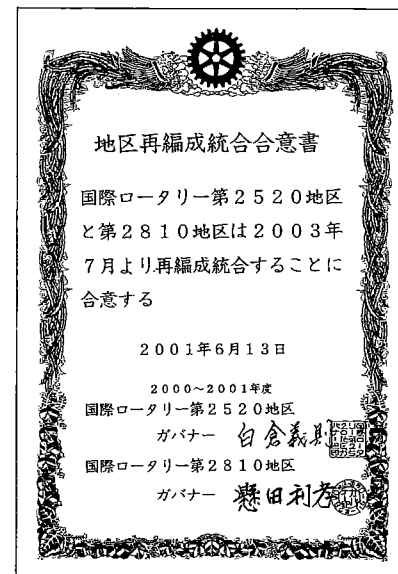 地区再編成統合合意書
国際ロータリー第2520地区
と第2810地区は2003年
7月より再編成統合することに
合意する
2001年6月13日
2000〜2001年度
国際ロータリー第2520地区
ガバナー 白倉義則
国際ロータリー第2810地区
ガバナー 懸田利孝